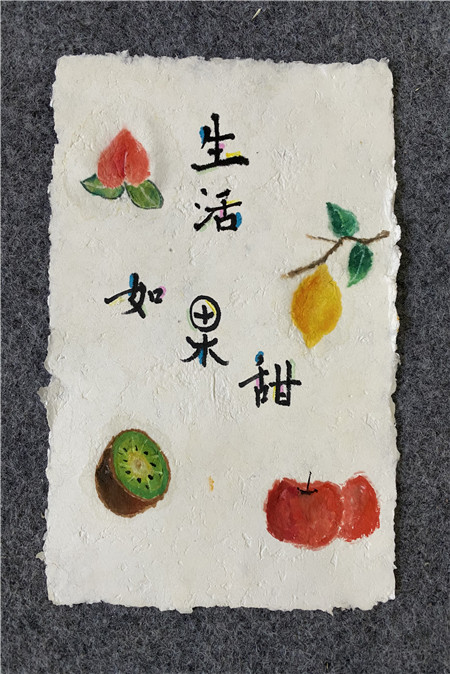 生活
如果甜